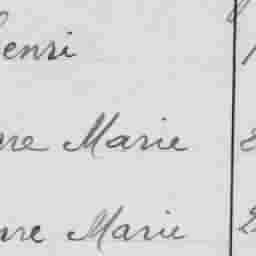 enri
re Marie
re Marie